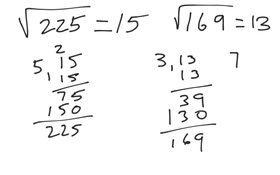 √225 = 15 √169 = 13
2
5, 15 3, 13 7
15 13
75 39
150 130
225 169